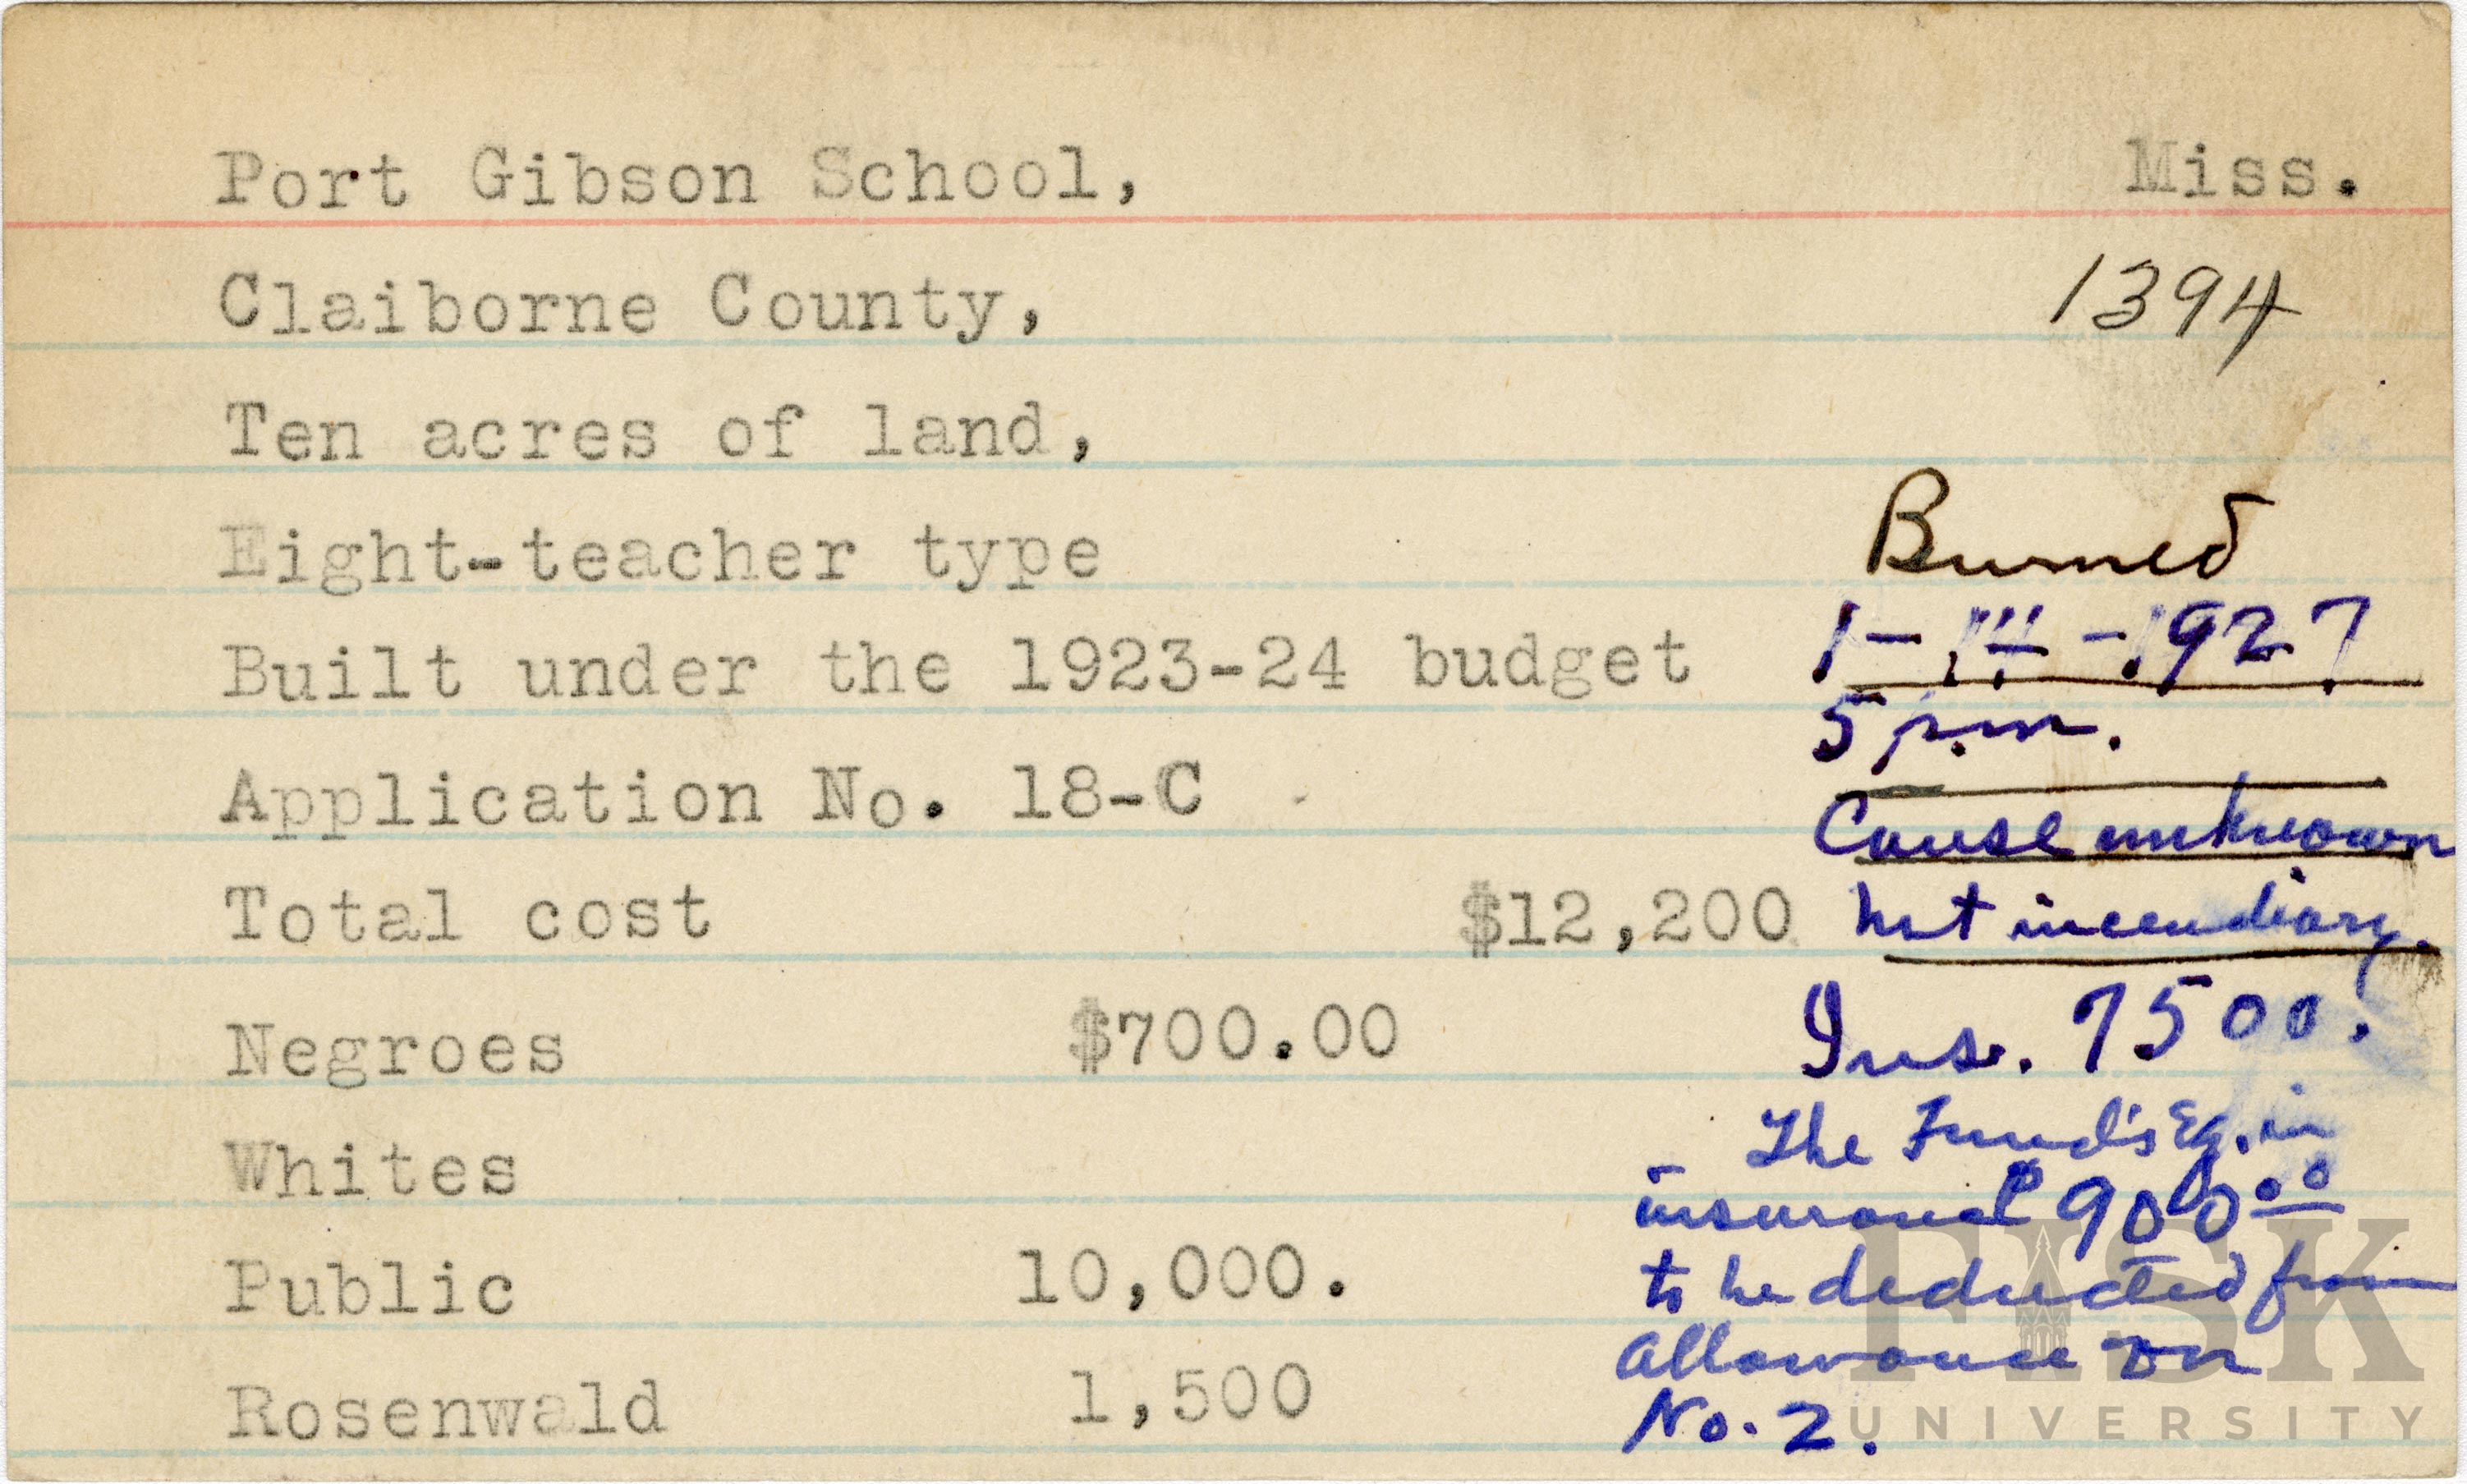 Port Gibson School, Miss.
1394
Claiborne County,
Ten acres of land,
Eight-teacher type
Built under the 1923-24 budget
Application No. 18-C
Total cost $12,200
Negroes $700.00
Whites
Public 10,000.
Rosenwald 1,500
Burned
1- -1927
5 p.m.
Cause unknown
not incendiary.
Ins. 7500.
The Fund's Eq. in
insurance 900 00
to be deducted from
allowance on
No. 2.
FISK
UNIVERSITY